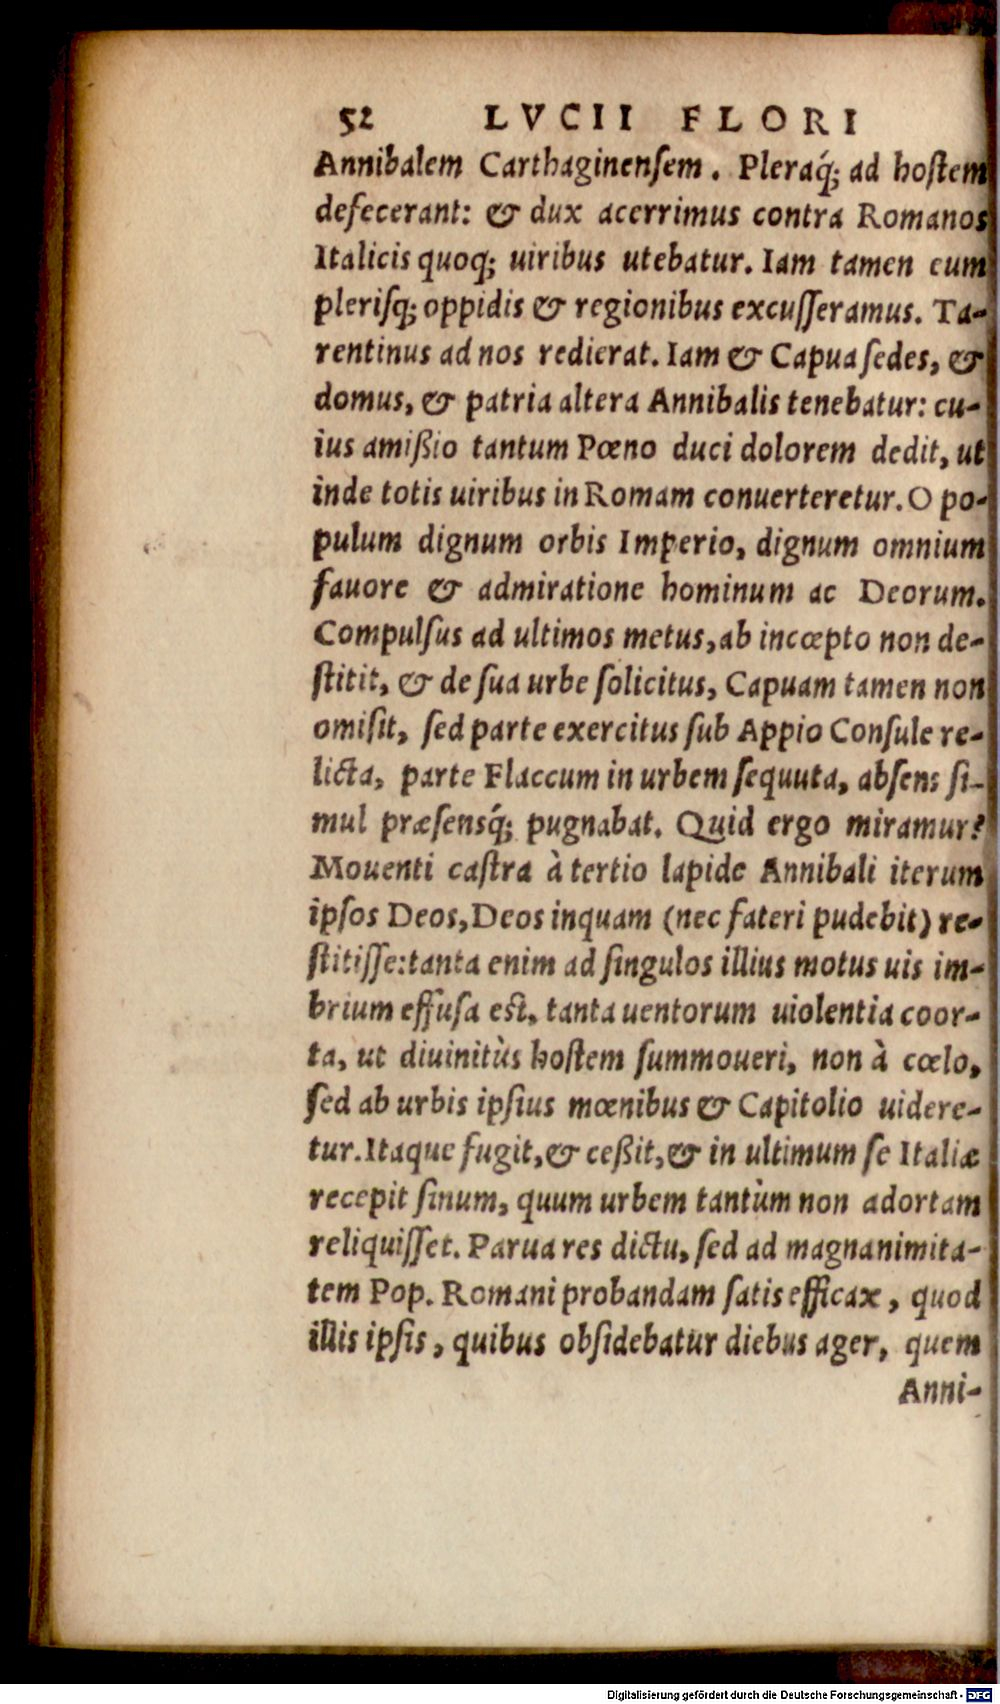 52 LVCII FLORI
Annibalem Carthaginenſem. Pleraq́; ad hoſtem
defecerant: & dux acerrimus contra Romanos
Italicis quoq; uiribus utebatur. Iam tamen eum
pleriſq; oppidis & regionibus excuſſeramus. Ta-
rentinus ad nos redierat. Iam & Capua ſedes, &
domus, & patria altera Annibalis tenebatur: cu-
ius amißio tantum Pœno duci dolorem dedit, ut
inde totis uiribus in Romam conuerteretur. O po-
pulum dignum orbis Imperio, dignum omnium
fauore & admiratione hominum ac Deorum.
Compulſus ad ultimos metus, ab incœpto non de-
ſtitit, & de ſua urbe ſolicitus, Capuam tamen non
omiſit, ſed parte exercitus ſub Appio Conſule re-
licta, parte Flaccum in urbem ſequuta, abſens ſi-
mul præſensq́; pugnabat. Quid ergo miramur?
Mouenti caſtra à tertio lapide Annibali iterum
ipſos Deos, Deos inquam (nec fateri pudebit) re-
ſtitiſſe: tanta enim ad ſingulos illius motus uis im-
brium effuſa eſt, tanta uentorum uiolentia coor-
ta, ut diuinitùs hoſtem ſummoueri, non à cœlo,
ſed ab urbis ipſius mœnibus & Capitolio uidere-
tur. Itaque fugit, & ceßit, & in ultimum ſe Italiæ
recepit ſinum, quum urbem tantùm non adortam
reliquiſſet. Parua res dictu, ſed ad magnanimita-
tem Pop. Romani probandam ſatis efficax, quod
illis ipſis, quibus obſidebatur diebus ager, quem
Anni-
Digitalisierung gefördert durch die Deutsche Forschungsgemeinschaft - DFG